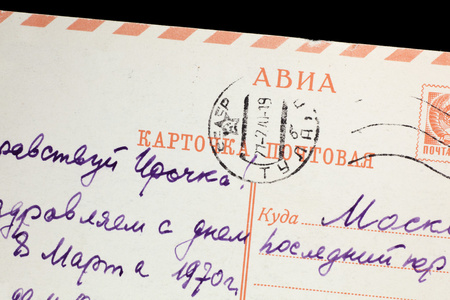 АВИА
КАРТОЧКА ПОЧТОВАЯ
ПОЧТА
СССР
ТУЛА
равствуй Ирочка!
здравляем с днем
8 Марта 1970г.
Куда Моск
последний пер